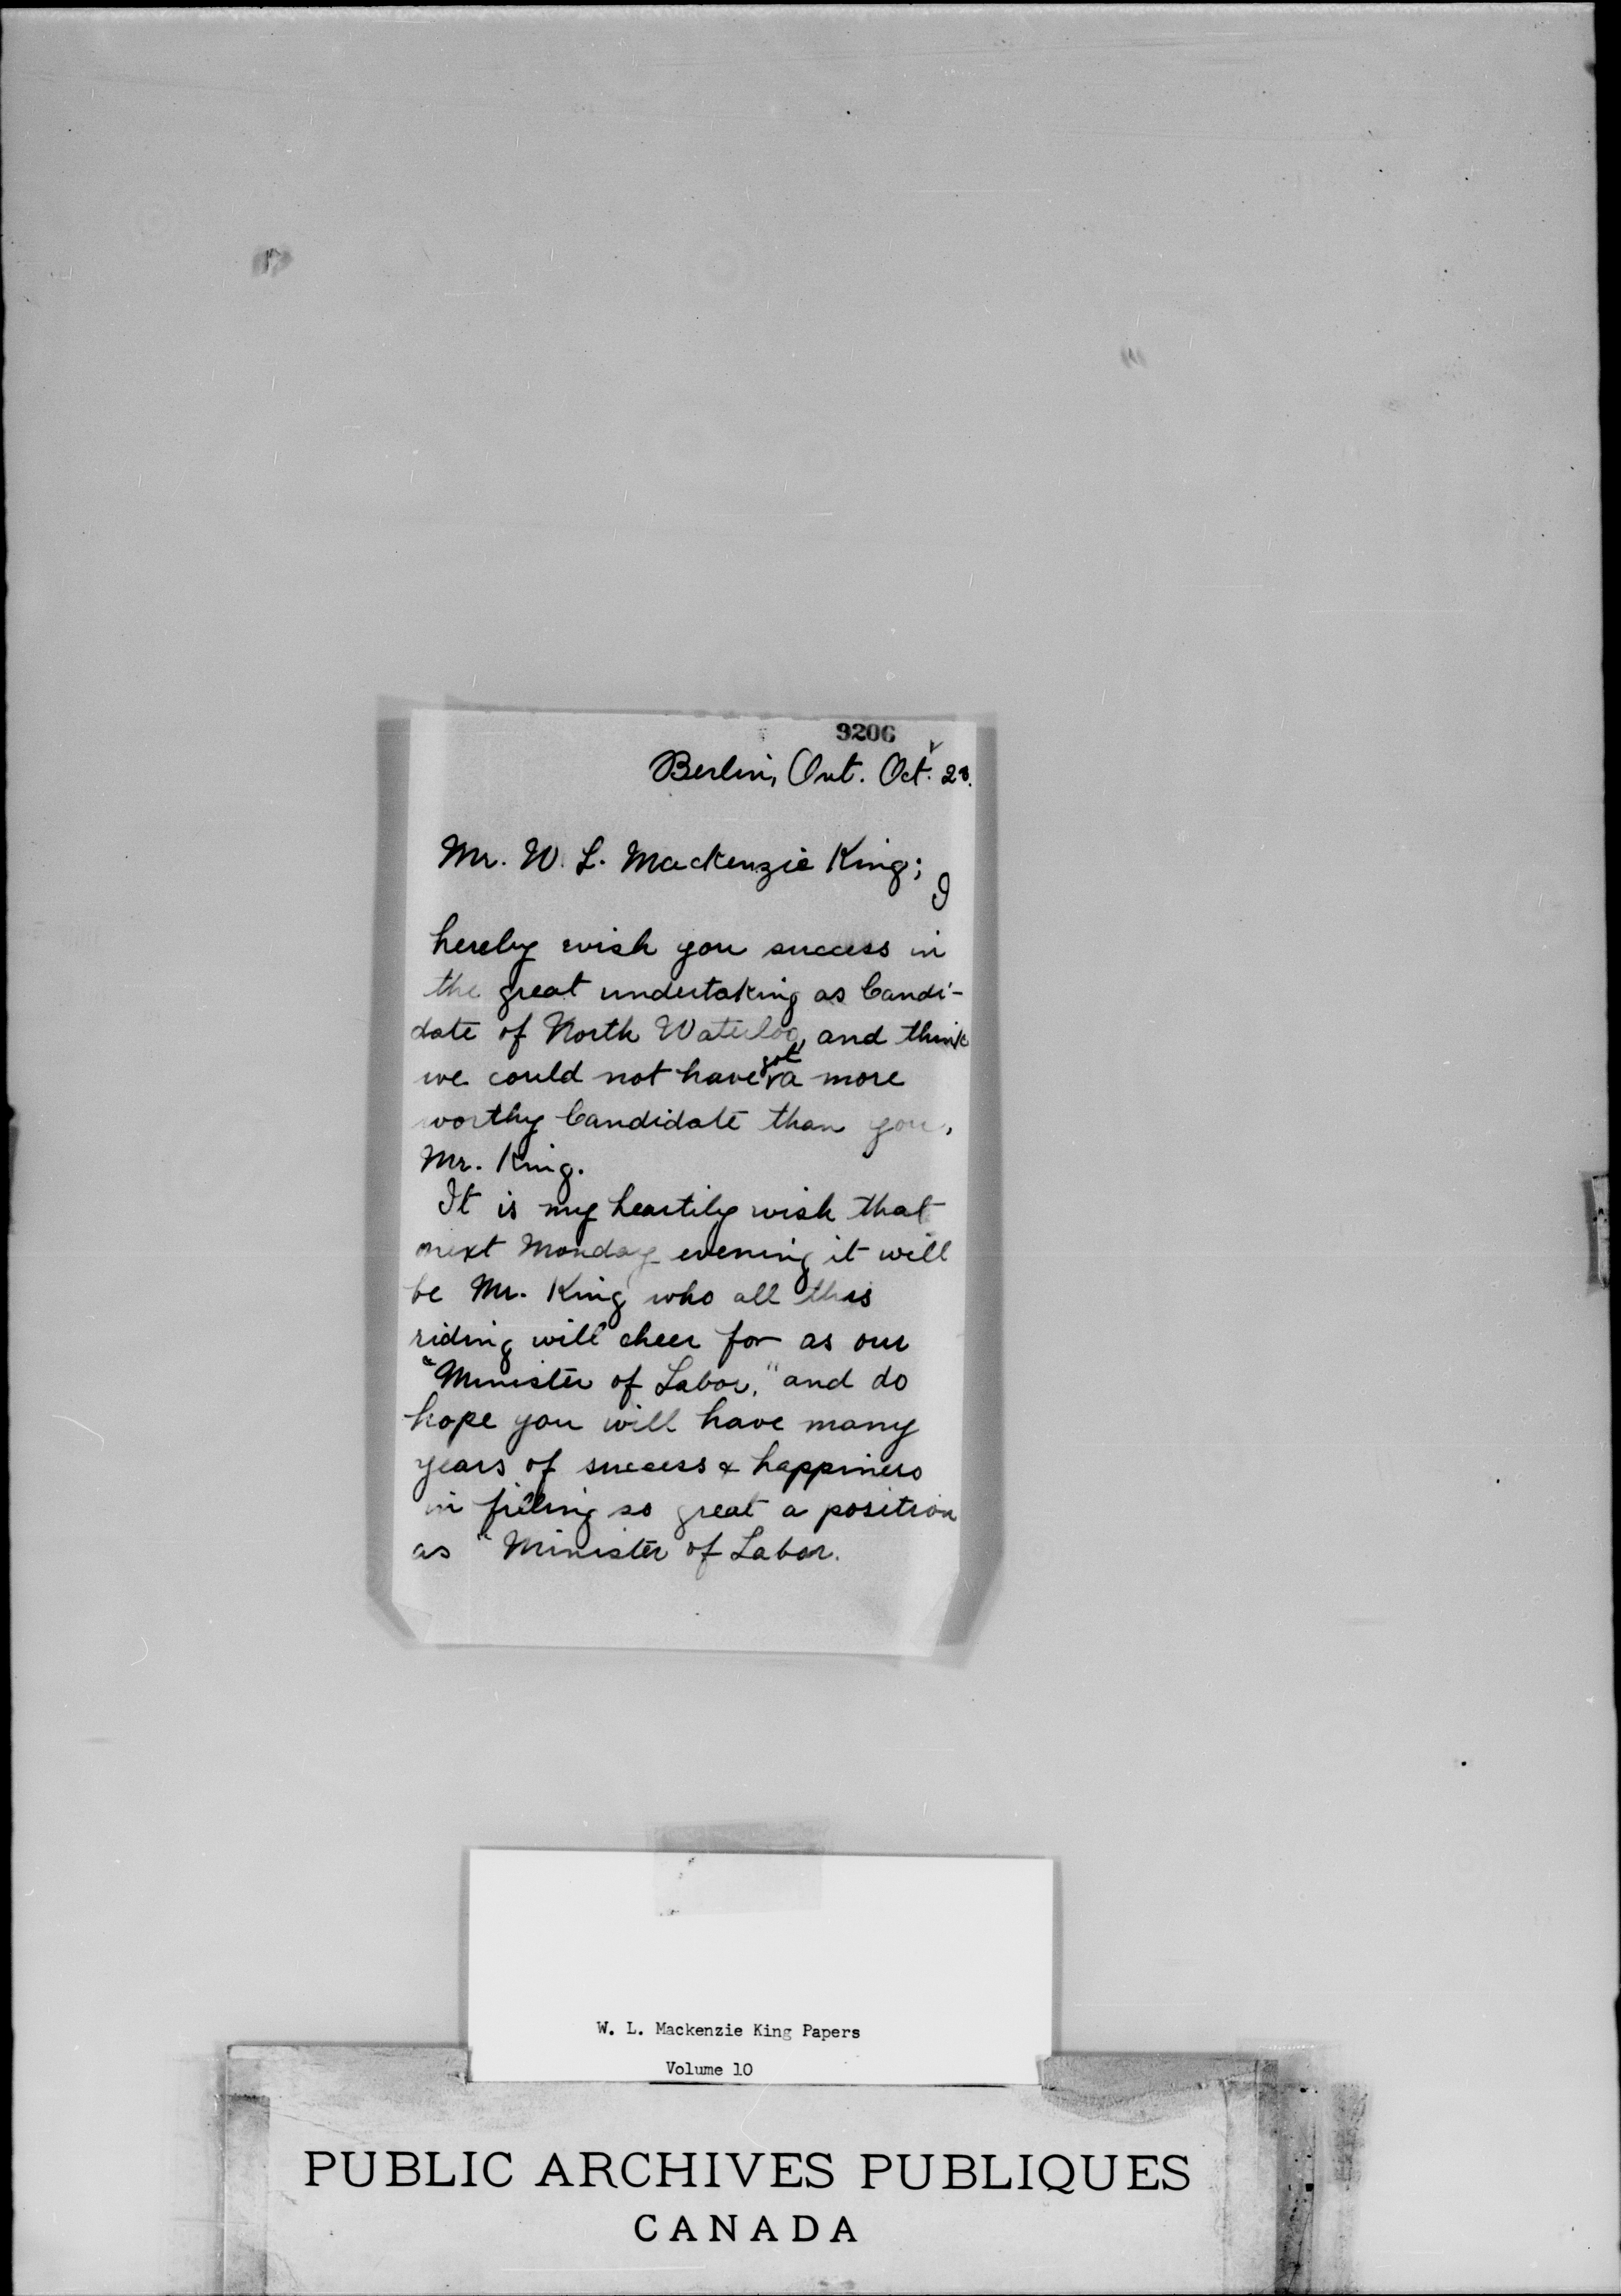 9206
Berlin, Ont. Oct. 23.
Mr. W. L. Mackenzie King;
I
hereby wish you success in
the great undertaking as Candi-
date of North Waterloo, and think
got
we could not have a more
worthy Candidate than you,
Mr. King.
It is my heartily wish that
next Monday evening it will
be Mr. King who all this
riding will cheer for as our
"Minister of Labor," and do
hope you will have many
years of success & happiness
in filling so great a position
as "Minister of Labor.
W. L. Mackenzie King Papers
Volume 10
PUBLIC ARCHIVES PUBLIQUES
CANADA